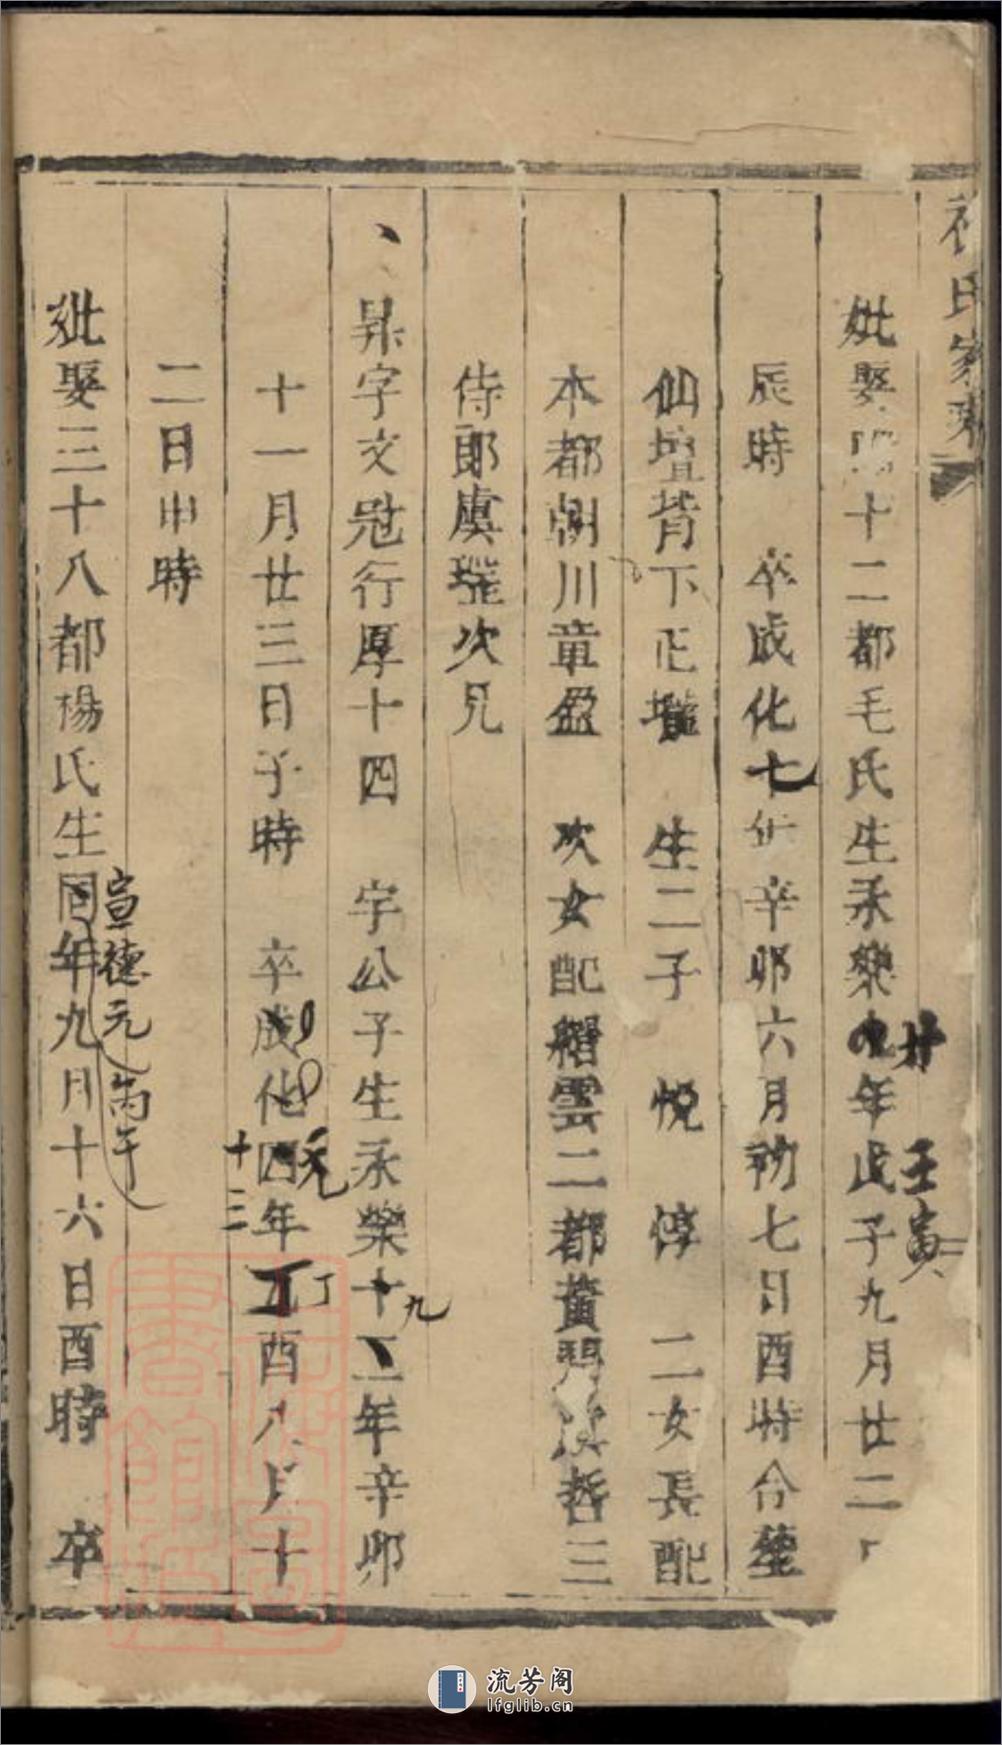 氏家乘
妣娶四十二都毛氏生永樂九年戊子九月廿二
廿 壬寅
辰時 卒成化七年辛卯六月初七日酉時合葬
仙壇背下正壠 生二子 悦 淳 二女長配
本都朝川章盈 次女配縉雲二都黄門漢哲三
侍郎虞瑆次兄
昇字文冠行厚十四 字公子生永樂十二年辛卯
九
十一月廿三日子時 卒成化四年丁酉八月十
元 十三 丁
二日申時
妣娶三十八都楊氏生同年九月十六日酉時 卒
宣德元丙午
流芳阁
lfglib.cn